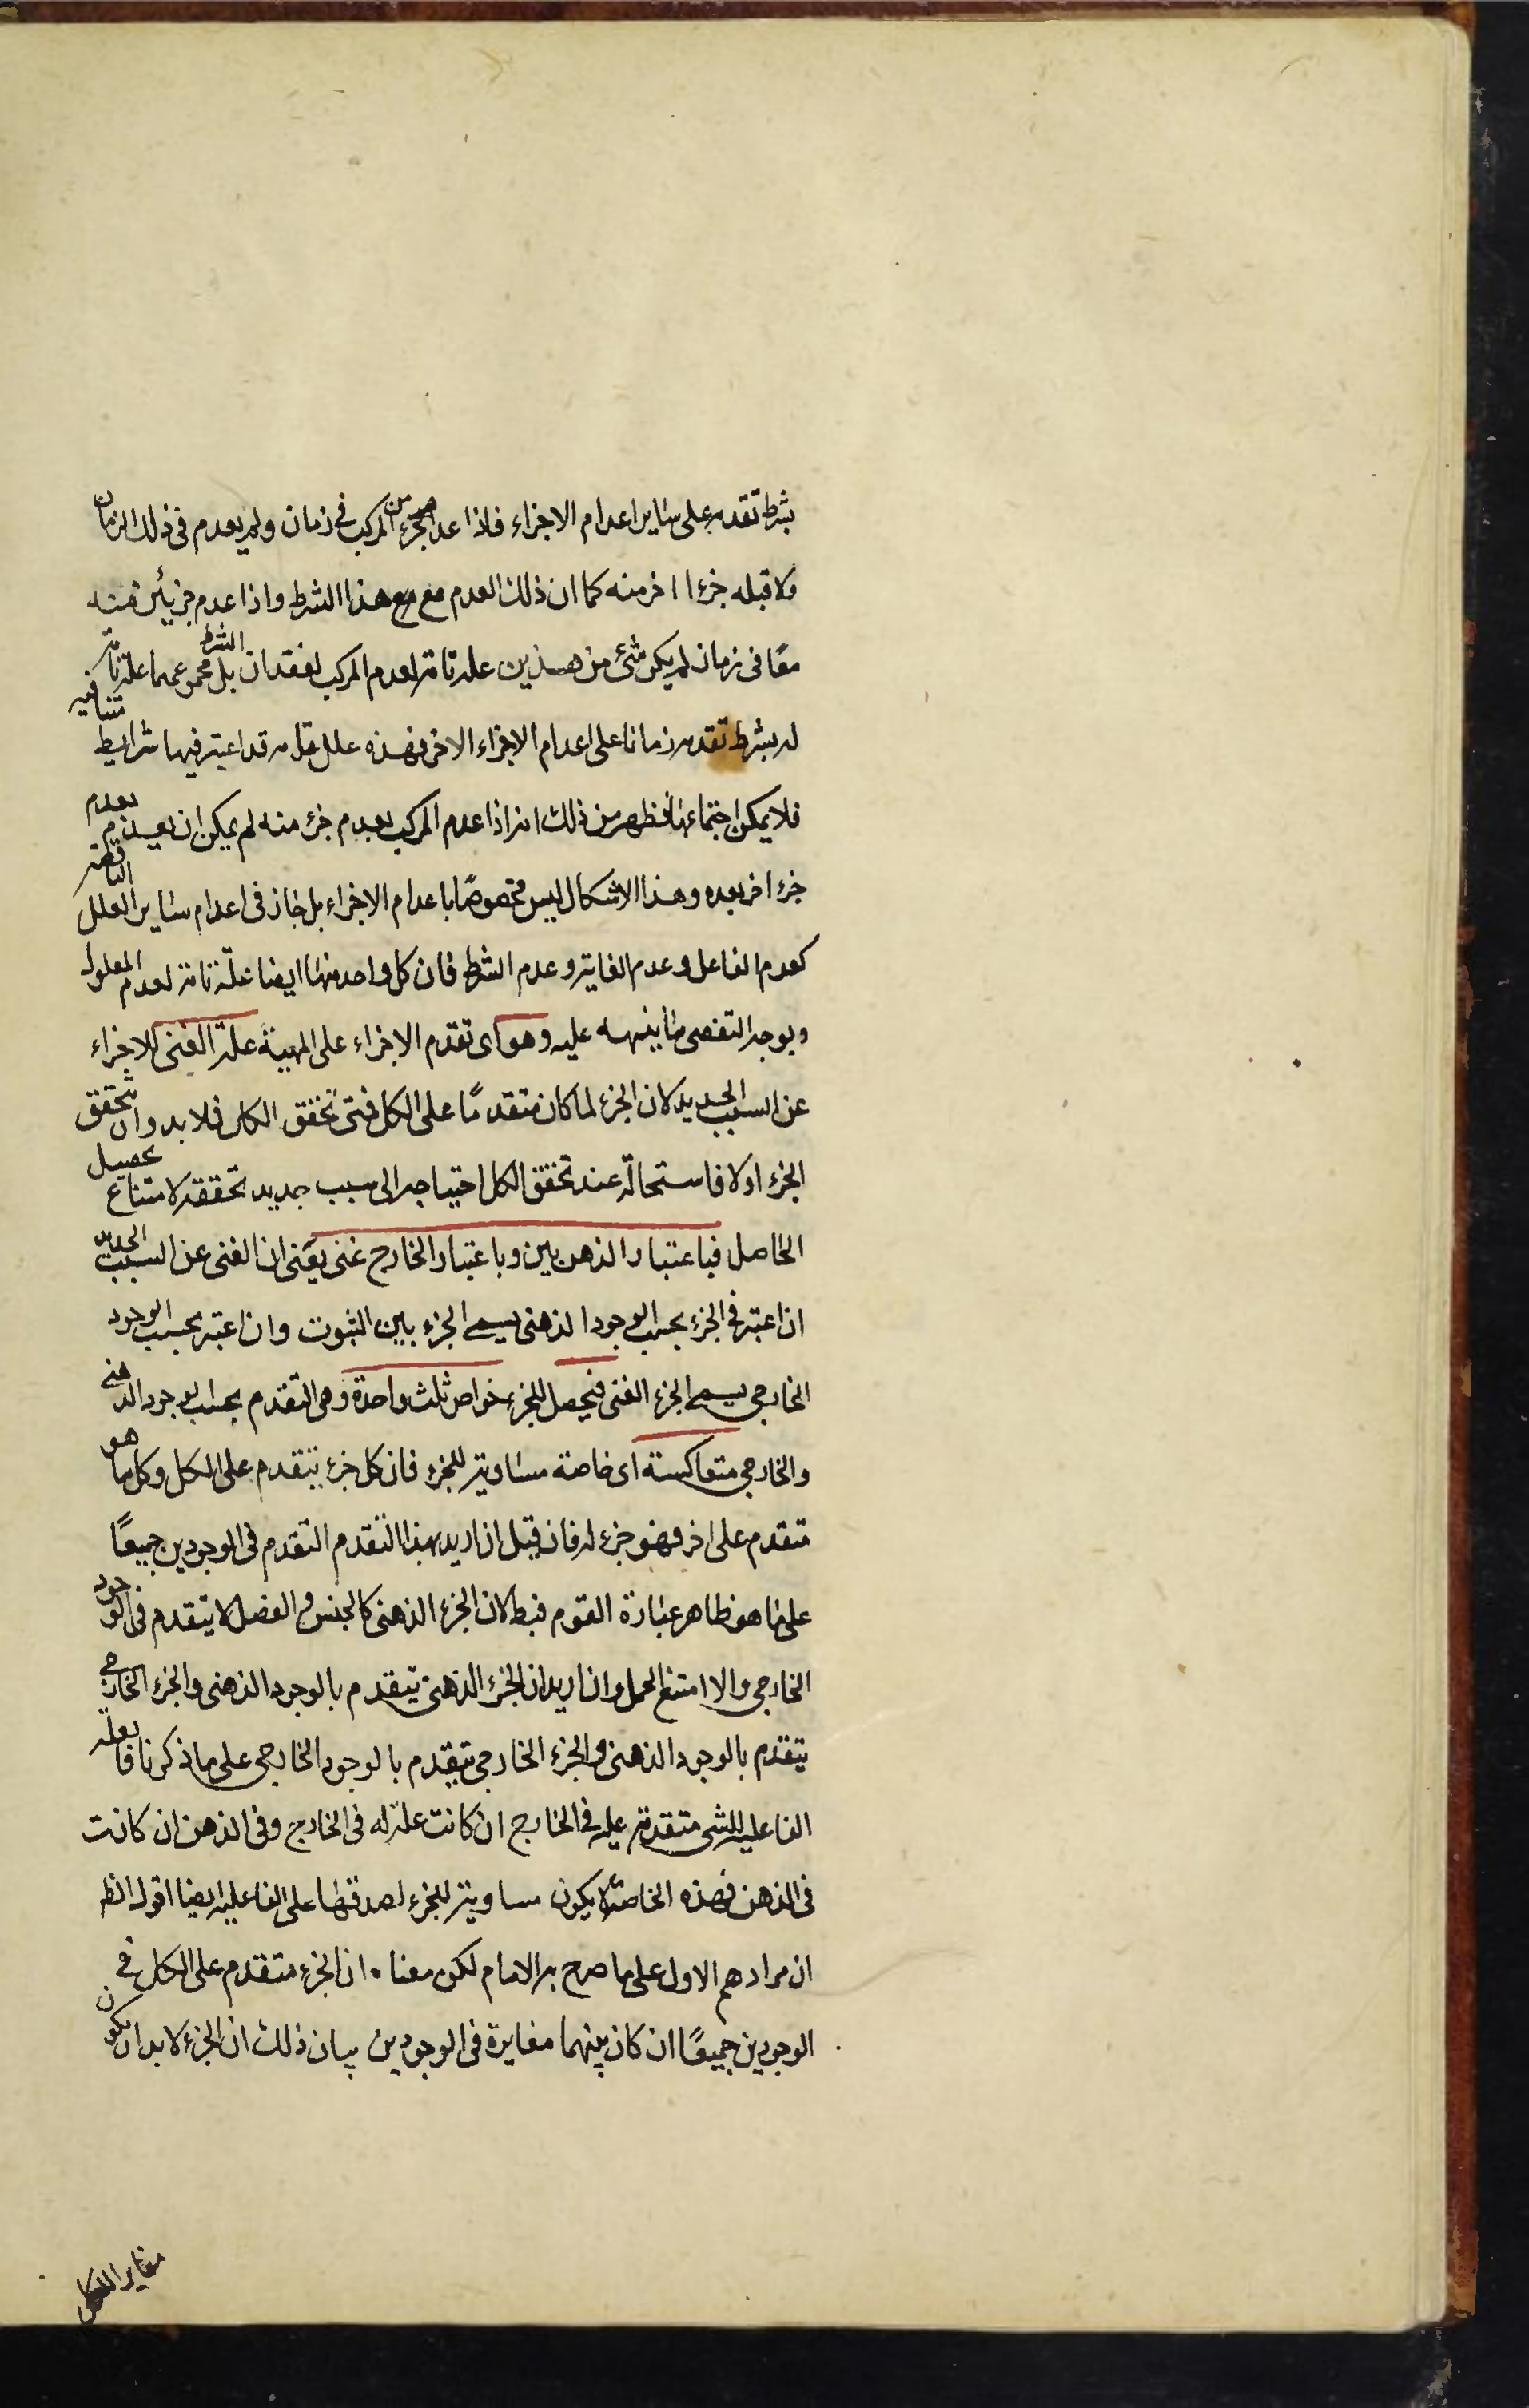 بشرط تقدمه على ساير اعدام الاجزاء فاذا عدم جزء من المركب فى زمان ولم يعدم فى ذلك الزمان
ولا قبله جزءا اخر منه كما ان ذلك العدم مع هذا الشرط واذا عدم جزئين منه
معًا فى زمان لم يكن شئ من هذين علة تامة لعدم المركب لفقدان الشرط بل مجموعهما علة تامة
له بشرط تقدمه زمانا على اعدام الاجزاء الاخر فهذه علل تامة قد اعتبر فيها شرايط متنافية
فلا يمكن اجتماعها فظهر من ذلك انه اذا عدم المركب بعدم جزء منه لم يمكن ان يعدم بعدم
جزء اخر بعده وهذا الاشكال ليس مخصوصًا باعدام الاجزاء بل جاز فى اعدام ساير العلل الناقصة
كعدم الفاعل وعدم الغاية وعدم الشرط فان كل واحد منها ايضا علّة تامة لعدم المعلول
وبوجه التفصى ما ينبهه عليه وهو اى تقدم الاجزاء على المهية علة الغنى للاجزاء
عن السبب الجديد لان الجزء لما كان متقدمًا على الكل فمتى تحقق الكل فلا بد وان تحقق
الجزء اولا فاستحالة عند تحقق الكل احتياجه الى سبب جديد تحققه لامتناع تحصيل
الحاصل فباعتبار الذهن بين وباعتبار الخارج غنى يعنى ان الغنى عن السبب الجديد
ان اعتبر فى الجزء بحسب الوجود الذهنى يسمى الجزء بين الثبوت وان اعتبر بحسب الوجود
الخارجى يسمى الجزء الغنى فيحصل للجزء خواص ثلث واحدة وهى التقدم بحسب الوجود الذهنى
والخارجى متعاكسة اى خاصة مساوية للجزء فان كل جزء يتقدم على الكل وكل ما هو
متقدم على اخر فهو جزء له فان قيل ان اريد بهذا التقدم التقدم فى الوجودين جميعًا
على ما هو ظاهر عبارة القوم فبط لان الجزء الذهنى كالجنس والفصل لا يتقدم فى الوجود
الخارجى والا امتنع الحمل وان اريد ان الجزء الذهنى يتقدم بالوجود الذهنى والجزء الخارجى
يتقدم بالوجود الذهنى والجزء الخارجى يتقدم بالوجود الخارجى على ما ذكرنا فالعلة
الفاعلية للشى متقدمة عليه فى الخارج ان كانت علة له فى الخارج وفى الذهن ان كانت
فى الذهن فهذه الخاصة لا يكون مساوية للجزء لصدقها على الفاعلية ايضا اقول الظ
ان مرادهم الاول على ما صرح به الامام لكن معناه ان الجزء متقدم على الكل فى
الوجودين جميعًا ان كان بينهما مغايرة فى الوجودين بيان ذلك ان الجزء لا بد ان يكون
مغايرا للكل